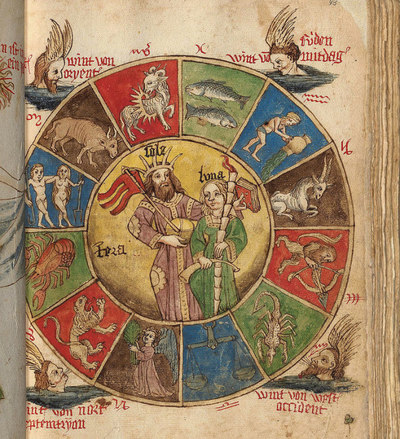 wint von
oryent
wint vo
süden
mitdag
luna
Terra
int von nort
eptemtryon
wint von west
occident